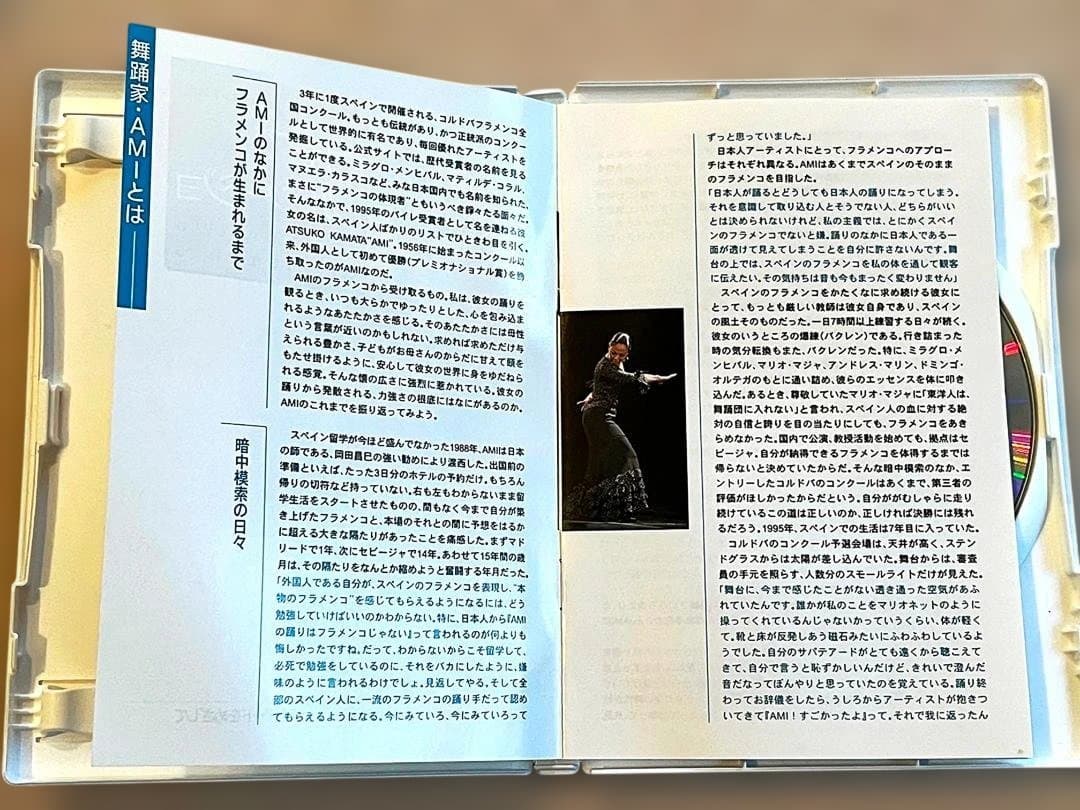 舞踊家・AMIとは
AMIのなかに
フラメンコが生まれるまで
3年に1度スペインで開催される、コルドバフラメンコ全
国コンクール。もっとも伝統があり、かつ正統派のコンクー
ルとして世界的に有名であり、毎回優れたアーティストを
発掘している。公式サイトでは、歴代受賞者の名前を見る
ことができる。ミラグロ・メンヒバル、マティルデ・コラル、
マヌエラ・カラスコなど、みな日本国内でも名前を知られた、
まさに“フラメンコの体現者”ともいうべき錚々たる面々だ。
そんななかで、1995年のバイレ受賞者として名を連ねる彼
女の名は、スペイン人ばかりのリストでひときわ目を引く。
ATSUKO KAMATA“AMI”。1956年に始まったコンクール以
来、外国人として初めて優勝(プレミオナショナル賞)を勝
ち取ったのがAMIなのだ。
AMIのフラメンコから受け取るもの。私は、彼女の踊りを
観るとき、いつも大らかでゆったりとした、心を包み込ま
れるようなあたたかさを感じる。そのあたたかさには母性
という言葉が近いのかもしれない。求めれば求めただけ与
えられる豊かさ、子どもがお母さんのからだに甘えて頤を
もたせ掛けるように、安心して彼女の世界に身をゆだねら
れる感覚。そんな懐の広さに強烈に惹かれている。彼女の
踊りから発散される、力強さの根底にはなにがあるのか。
AMIのこれまでを振り返ってみよう。
暗中模索の日々
スペイン留学が今ほど盛んでなかった1988年、AMIは日本
の師である、岡田昌巳の強い勧めにより渡西した。出国前の
準備といえば、たった3日分のホテルの予約だけ。もちろん
帰りの切符など持っていない。右も左もわからないまま留
学生活をスタートさせたものの、間もなく今まで自分が築
き上げたフラメンコと、本場のそれとの間に予想をはるか
に超える大きな隔たりがあったことを痛感した。まずマド
リードで1年、次にセビージャで14年。あわせて15年間の歳
月は、その隔たりをなんとか縮めようと奮闘する年月だった。
「外国人である自分が、スペインのフラメンコを表現し、“本
物のフラメンコ”を感じてもらえるようになるには、どう
勉強していけばいいのかわからない。特に、日本人から『AMI
の踊りはフラメンコじゃない』って言われるのが何よりも
悔しかったですね。だって、わからないからこそ留学して、
必死で勉強をしているのに、それをバカにしたように、嫌
味のように言われるわけでしょ。見返してやる。そして全
部のスペイン人に、一流のフラメンコの踊り手だって認め
てもらえるようになる。今にみていろ、今にみていろって
ずっと思っていました。」
日本人アーティストにとって、フラメンコへのアプロー
チはそれぞれ異なる。AMIはあくまでスペインのそのまま
のフラメンコを目指した。
「日本人が踊るとどうしても日本人の踊りになってしまう。
それを意識して取り込む人とそうでない人、どちらがいい
とは決められないけれど、私の主義では、とにかくスペイ
ンのフラメンコでないと嫌。踊りのなかに日本人である一
面が透けて見えてしまうことを自分に許さないんです。舞
台の上では、スペインのフラメンコを私の体を通して観客
に伝えたい。その気持ちは昔も今もまったく変わりません」
スペインのフラメンコをかたくなに求め続ける彼女に
とって、もっとも厳しい教師は彼女自身であり、スペイン
の風土そのものだった。一日7時間以上練習する日々が続く。
彼女のいうところの爆練(バクレン)である。行き詰まった
時の気分転換もまた、バクレンだった。特に、ミラグロ・メ
ンヒバル、マリオ・マジャ、アンドレス・マリン、ドミンゴ・
オルテガのもとに通い詰め、彼らのエッセンスを体に叩き
込んだ。あるとき、尊敬していたマリオ・マジャに「東洋人は、
舞踊団に入れない」と言われ、スペイン人の血に対する絶
対の自信と誇りを目の当たりにしても、フラメンコをあき
らめなかった。国内で公演、教授活動を始めても、拠点はセ
ビージャ。自分が納得できるフラメンコを体得するまでは
帰らないと決めていたからだ。そんな暗中模索のなか、エ
ントリーしたコルドバのコンクールはあくまで、第三者の
評価がほしかったからだという。自分ががむしゃらに走り
続けているこの道は正しいのか、正しければ決勝には残れ
るだろう。1995年、スペインでの生活は7年目に入っていた。
コルドバのコンクール予選会場は、天井が高く、ステン
ドグラスからは太陽が差し込んでいた。舞台からは、審査
員の手元を照らす、人数分のスモールライトだけが見えた。
「舞台に、今まで感じたことがない透き通った空気があふ
れていたんです。誰かが私のことをマリオネットのように
操ってくれているんじゃないかっていうくらい、体が軽く
て。靴と床が反発しあう磁石みたいにふわふわしているよ
うでした。自分のサパテアードがとても遠くから聴こえて
きて、自分で言うと恥ずかしいんだけど、きれいで澄んだ
音だなってぼんやりと思っていたのを覚えている。踊り終
わってお辞儀をしたら、うしろからアーティストが抱きつ
いてきて『AMI！すごかったよ』って。それで我に返ったん